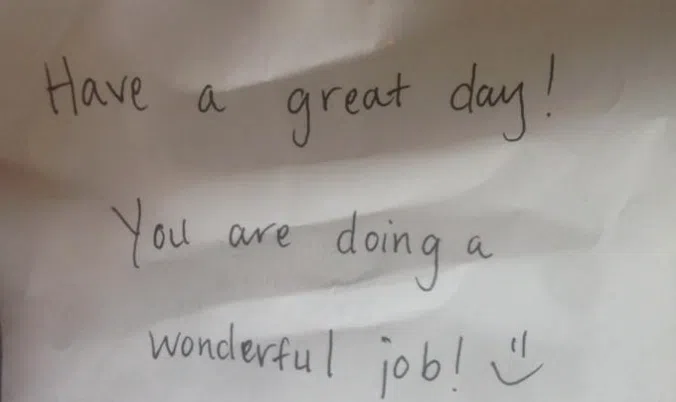 Have a great day!
You are doing a
wonderful job! :)